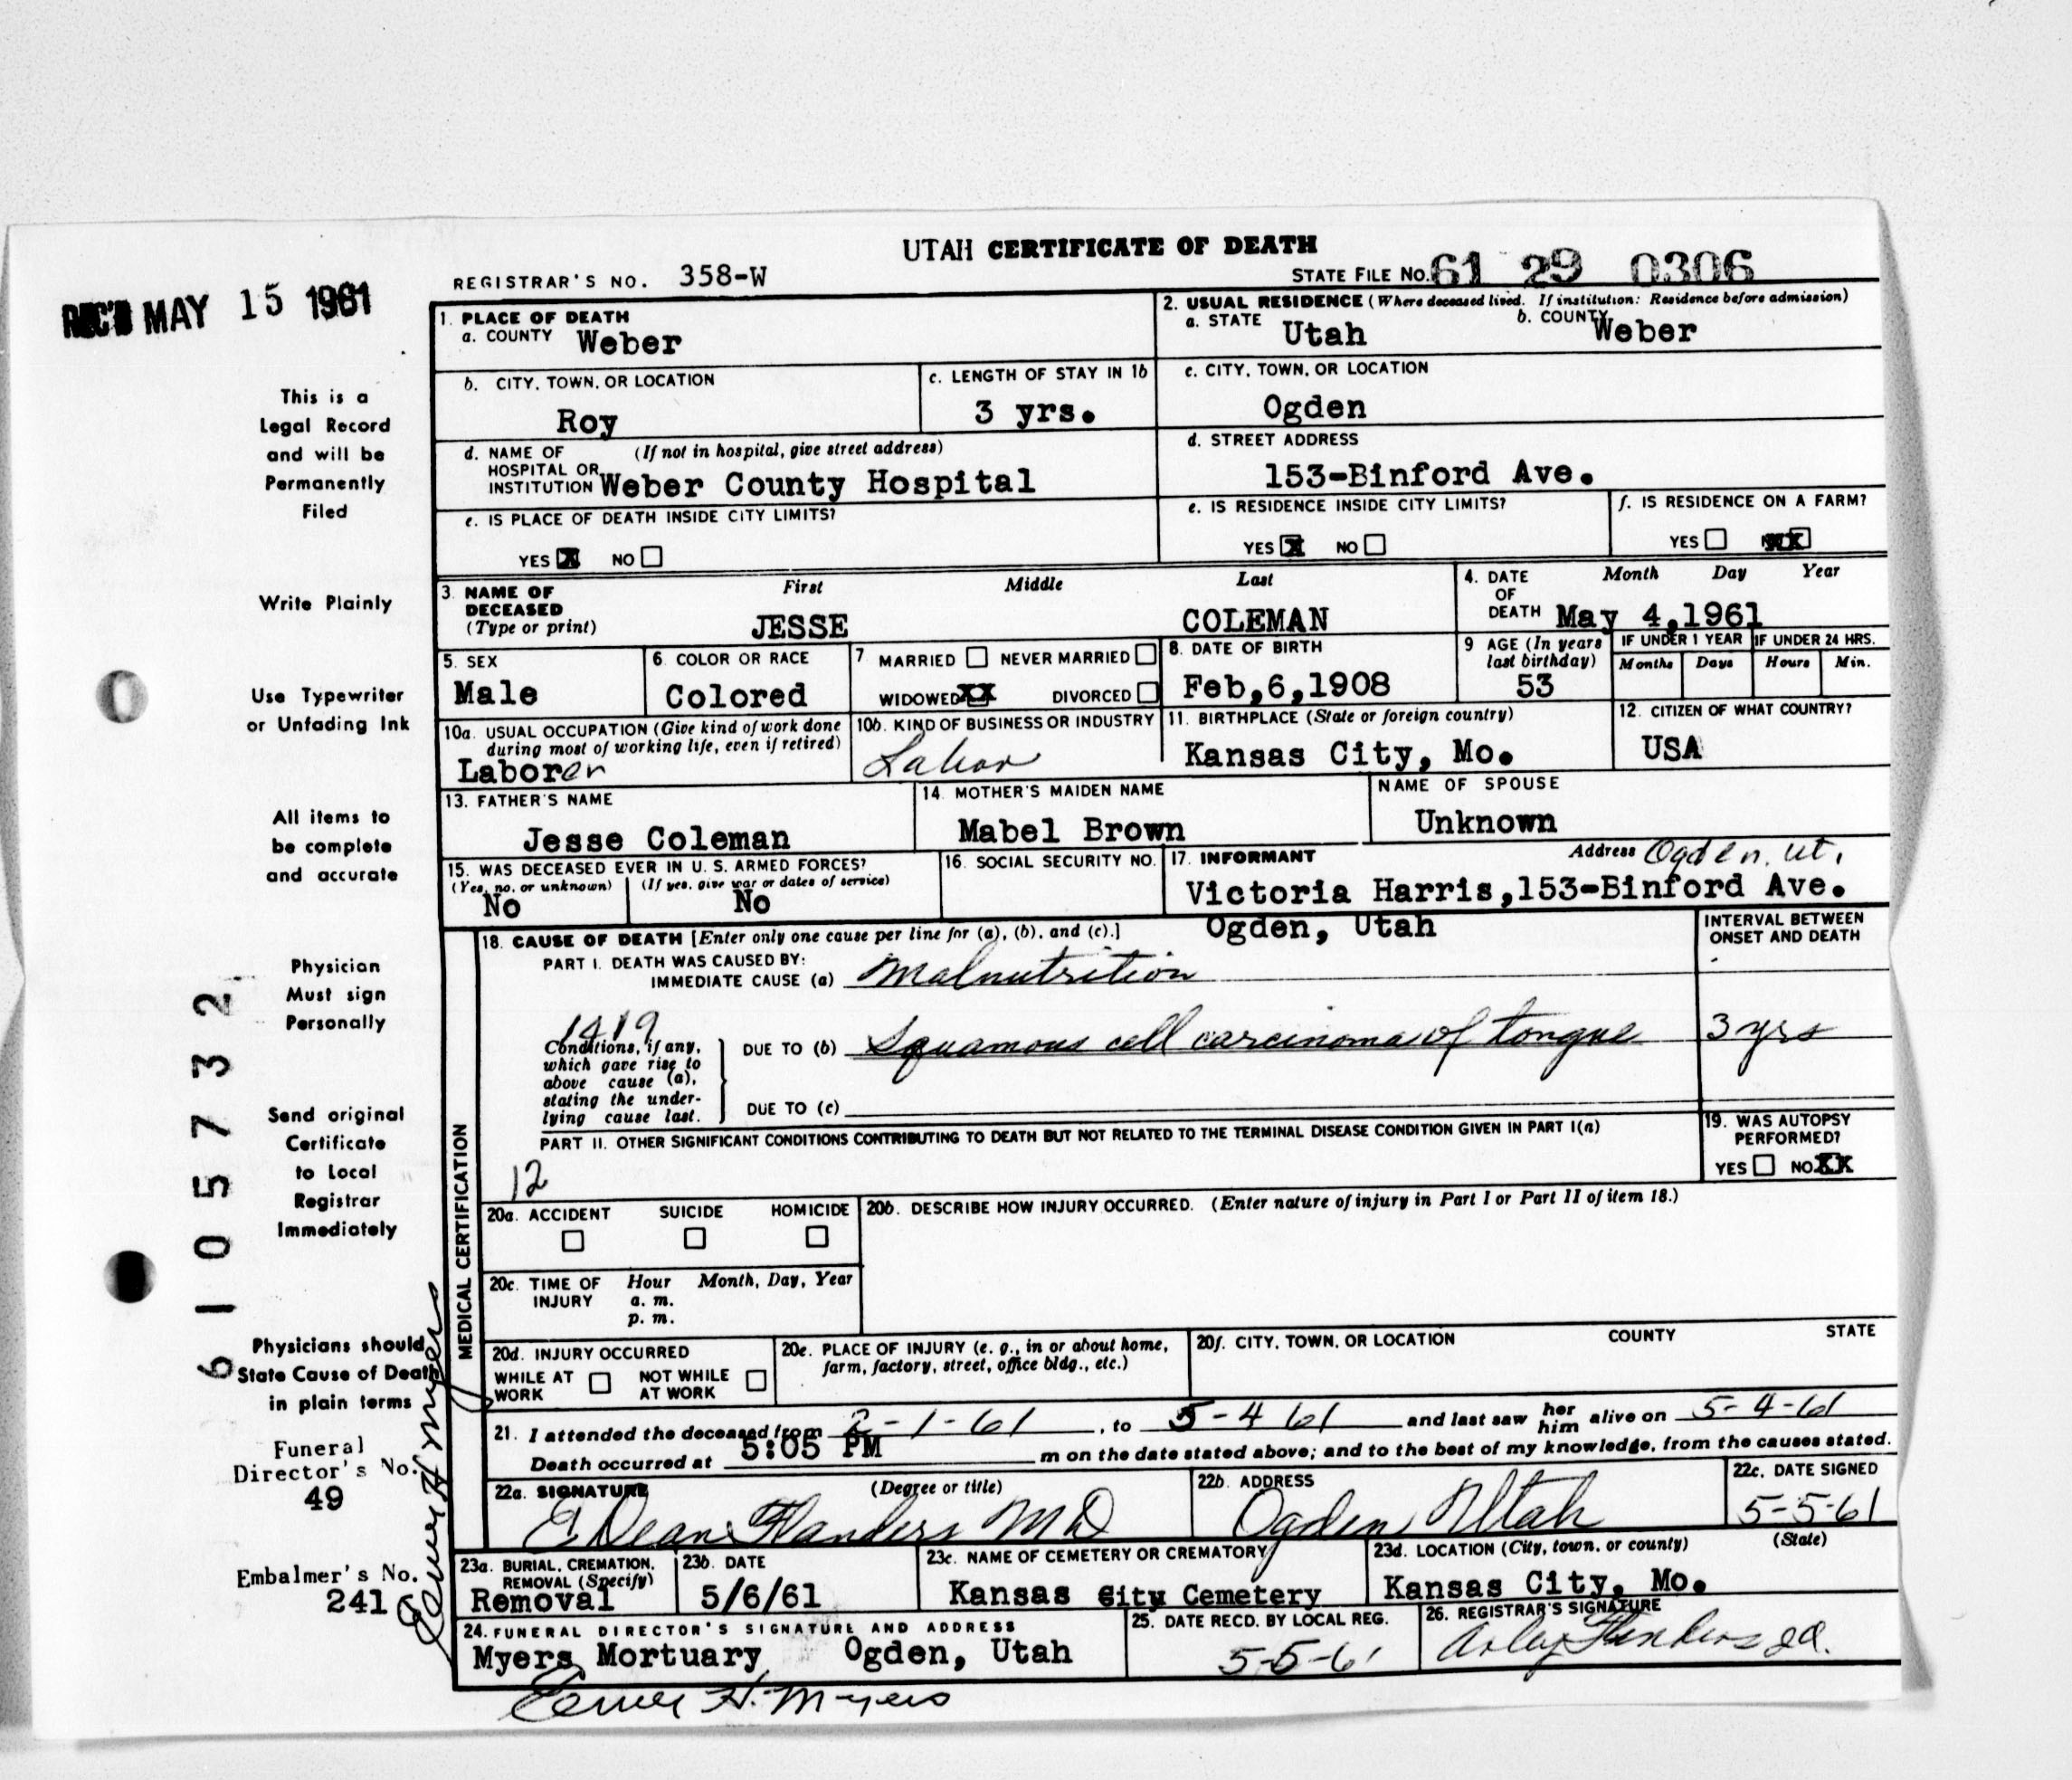 UTAH CERTIFICATE OF DEATH
REGISTRAR'S NO. 358-W
STATE FILE NO. 61 29 0306
REC'D MAY 15 1961
This is a
Legal Record
and will be
Permanently
Filed
Write Plainly
Use Typewriter
or Unfading Ink
All items to
be complete
and accurate
Physician
Must sign
Personally
Send original
Certificate
to Local
Registrar
Immediately
Physicians should
State Cause of Death
in plain terms
Funeral
Director's No.
49
Embalmer's No.
241
6105732
1. PLACE OF DEATH
a. COUNTY Weber
2. USUAL RESIDENCE (Where deceased lived. If institution: Residence before admission)
a. STATE Utah b. COUNTY Weber
b. CITY, TOWN, OR LOCATION
Roy
c. LENGTH OF STAY IN 1b
3 yrs.
c. CITY, TOWN, OR LOCATION
Ogden
d. NAME OF (If not in hospital, give street address)
HOSPITAL OR
INSTITUTION Weber County Hospital
d. STREET ADDRESS
153-Binford Ave.
e. IS PLACE OF DEATH INSIDE CITY LIMITS?
YES X NO
e. IS RESIDENCE INSIDE CITY LIMITS?
YES X NO
f. IS RESIDENCE ON A FARM?
YES
3. NAME OF
DECEASED
(Type or print)
First Middle Last
JESSE COLEMAN
4. DATE
OF
DEATH
Month Day Year
May 4,1961
5. SEX
Male
6. COLOR OR RACE
Colored
7 MARRIED NEVER MARRIED
WIDOWED XX DIVORCED
8. DATE OF BIRTH
Feb,6,1908
9 AGE (In years
last birthday)
53
IF UNDER 1 YEAR IF UNDER 24 HRS.
Months Days Hours Min.
10a. USUAL OCCUPATION (Give kind of work done
during most of working life, even if retired)
Laborer
10b. KIND OF BUSINESS OR INDUSTRY
Labor
11. BIRTHPLACE (State or foreign country)
Kansas City, Mo.
12. CITIZEN OF WHAT COUNTRY?
USA
13. FATHER'S NAME
Jesse Coleman
14. MOTHER'S MAIDEN NAME
Mabel Brown
NAME OF SPOUSE
Unknown
15. WAS DECEASED EVER IN U. S. ARMED FORCES?
(Yes, no. or unknown) (If yes, give war or dates of service)
No No
16. SOCIAL SECURITY NO.
17. INFORMANT Address Ogden, Ut.
Victoria Harris,153-Binford Ave.
Ogden, Utah
MEDICAL CERTIFICATION
18. CAUSE OF DEATH [Enter only one cause per line for (a), (b), and (c).]
INTERVAL BETWEEN
ONSET AND DEATH
PART I. DEATH WAS CAUSED BY:
IMMEDIATE CAUSE (a) Malnutrition
1419
Conditions, if any,
which gave rise to
above cause (a),
stating the under-
lying cause last.
DUE TO (b) Squamous cell carcinoma of tongue 3 yrs
DUE TO (c)
PART II. OTHER SIGNIFICANT CONDITIONS CONTRIBUTING TO DEATH BUT NOT RELATED TO THE TERMINAL DISEASE CONDITION GIVEN IN PART I(a)
12
19. WAS AUTOPSY
PERFORMED?
YES NO XX
20a. ACCIDENT SUICIDE HOMICIDE
20b. DESCRIBE HOW INJURY OCCURRED. (Enter nature of injury in Part I or Part II of item 18.)
20c. TIME OF
INJURY
Hour Month, Day, Year
a. m.
p. m.
20d. INJURY OCCURRED
WHILE AT
WORK
NOT WHILE
AT WORK
20e. PLACE OF INJURY (e. g., in or about home,
farm, factory, street, office bldg., etc.)
20f. CITY, TOWN, OR LOCATION COUNTY STATE
21. I attended the deceased from 2-1-61, to 5-4 61 and last saw her him alive on 5-4-61
Death occurred at 5:05 PM m on the date stated above; and to the best of my knowledge, from the causes stated.
22a. SIGNATURE (Degree or title)
E Dean Flanders MD
22b. ADDRESS
Ogden Utah
22c. DATE SIGNED
5-5-61
23a. BURIAL, CREMATION,
REMOVAL (Specify)
Removal
23b. DATE
5/6/61
23c. NAME OF CEMETERY OR CREMATORY
Kansas City Cemetery
23d. LOCATION (City, town, or county) (State)
Kansas City, Mo.
24. FUNERAL DIRECTOR'S SIGNATURE AND ADDRESS
Myers Mortuary Ogden, Utah
25. DATE RECD. BY LOCAL REG.
5-5-61
26. REGISTRAR'S SIGNATURE
H. Myers
H Myers